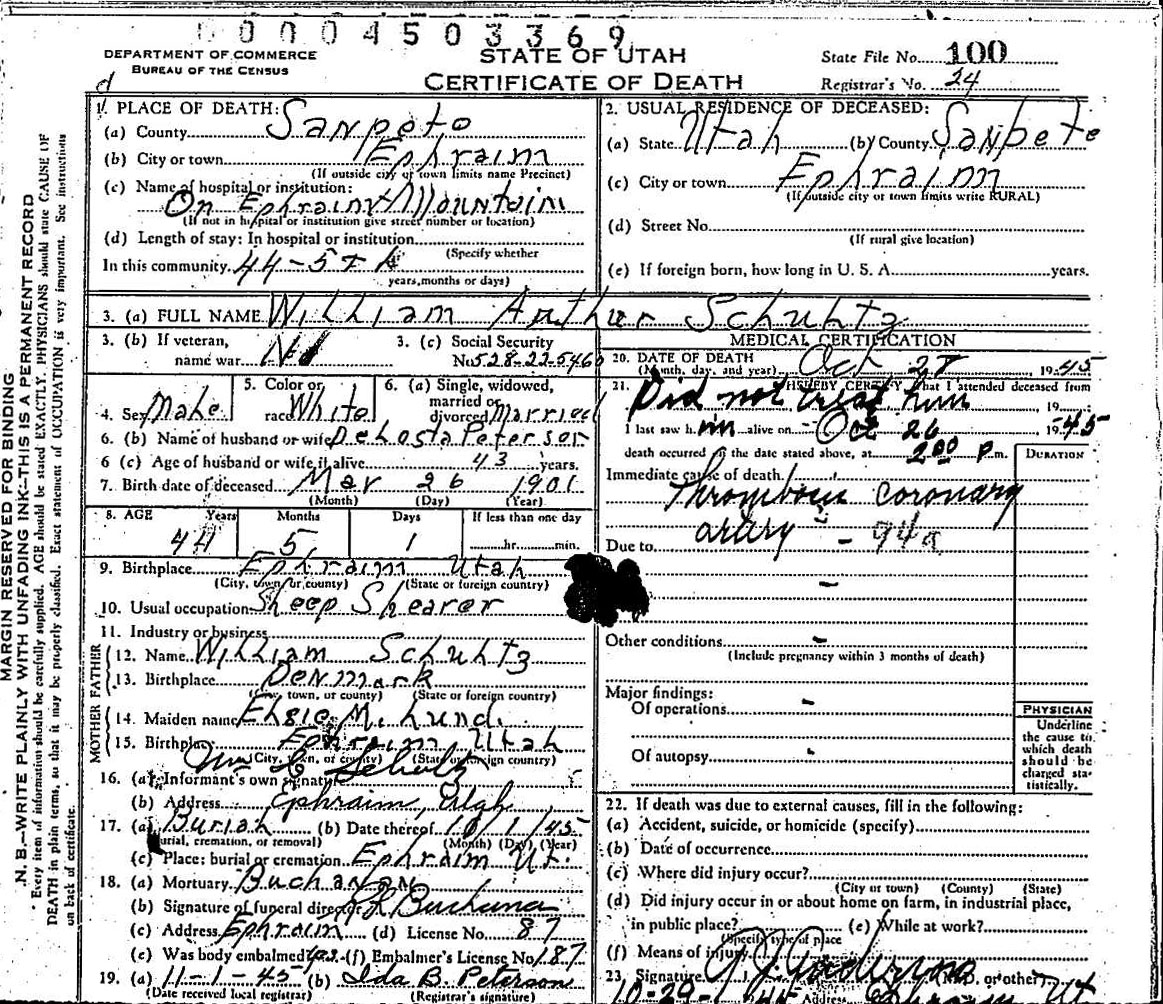 00004503369
DEPARTMENT OF COMMERCE
BUREAU OF THE CENSUS
STATE OF UTAH
CERTIFICATE OF DEATH
State File No. 100
Registrar's No. 24
MARGIN RESERVED FOR BINDING
N. B.—WRITE PLAINLY WITH UNFADING INK—THIS IS A PERMANENT RECORD
Every item of information should be carefully supplied. AGE should be stated EXACTLY. PHYSICIANS should state CAUSE OF
DEATH in plain terms, so that it may be properly classified. Exact statement of OCCUPATION is very important. See instructions
on back of certificate.
1. PLACE OF DEATH:
(a) County Sanpete
(b) City or town Ephraim
(If outside city or town limits name Precinct)
(c) Name of hospital or institution:
On Ephraim Mountain
(If not in hospital or institution give street number or location)
(d) Length of stay: In hospital or institution
(Specify whether
In this community. 44-5
years, months or days)
2. USUAL RESIDENCE OF DECEASED:
(a) State Utah (b) County Sanpete
(c) City or town Ephraim
(If outside city or town limits write RURAL)
(d) Street No.
(If rural give location)
(e) If foreign born, how long in U. S. A. years.
3. (a) FULL NAME William Arthur Schultz
3. (b) If veteran,
name war No
3. (c) Social Security
No. 528-22-5460
4. Sex Male
5. Color or
race White
6. (a) Single, widowed,
married or
divorced Married
6. (b) Name of husband or wife DeLosta Peterson
6 (c) Age of husband or wife if alive 43 years.
7. Birth date of deceased Mar 26 1901
(Month) (Day) (Year)
8. AGE Years Months Days If less than one day
44 5 1 hr. min.
9. Birthplace Ephraim Utah
(City, town or county) (State or foreign country)
10. Usual occupation Sheep Shearer
11. Industry or business
FATHER
12. Name William Schultz
13. Birthplace Denmark
(City, town, or county) (State or foreign country)
MOTHER
14. Maiden name Elsie M. Lund
15. Birthplace Ephraim Utah
(City, town, or county) (State or foreign country)
16. (a) Informant's own signature Schultz
(b) Address Ephraim, Utah
17. (a) Burial (b) Date thereof 10/1/45
(Burial, cremation, or removal) (Month) (Day) (Year)
(c) Place: burial or cremation Ephraim Ut.
18. (a) Mortuary Buchanan
(b) Signature of funeral director
(c) Address Ephraim (d) License No. 87
(e) Was body embalmed yes (f) Embalmer's License No. 187
19. (a) 11-1-45 (b) Ida B. Peterson
(Date received local registrar) (Registrar's signature)
MEDICAL CERTIFICATION
20. DATE OF DEATH Oct 27, 1945
(Month, day, and year)
21. I HEREBY CERTIFY that I attended deceased from
Did not treat him 19
I last saw him alive on Oct 26 1945
death occurred on the date stated above, at 2:00 P.m.
DURATION
Immediate cause of death
Thrombosis coronary
artery - 94a
Due to
Other conditions
(Include pregnancy within 3 months of death)
Major findings:
Of operations
Of autopsy
PHYSICIAN
Underline
the cause to
which death
should be
charged sta-
tistically.
22. If death was due to external causes, fill in the following:
(a) Accident, suicide, or homicide (specify)
(b) Date of occurrence
(c) Where did injury occur?
(City or town) (County) (State)
(d) Did injury occur in or about home on farm, in industrial place,
in public place? (e) While at work?
(Specify type of place
(f) Means of injury
23. Signature (M.D. or other)
10-29-1945 Address Ephraim Ut